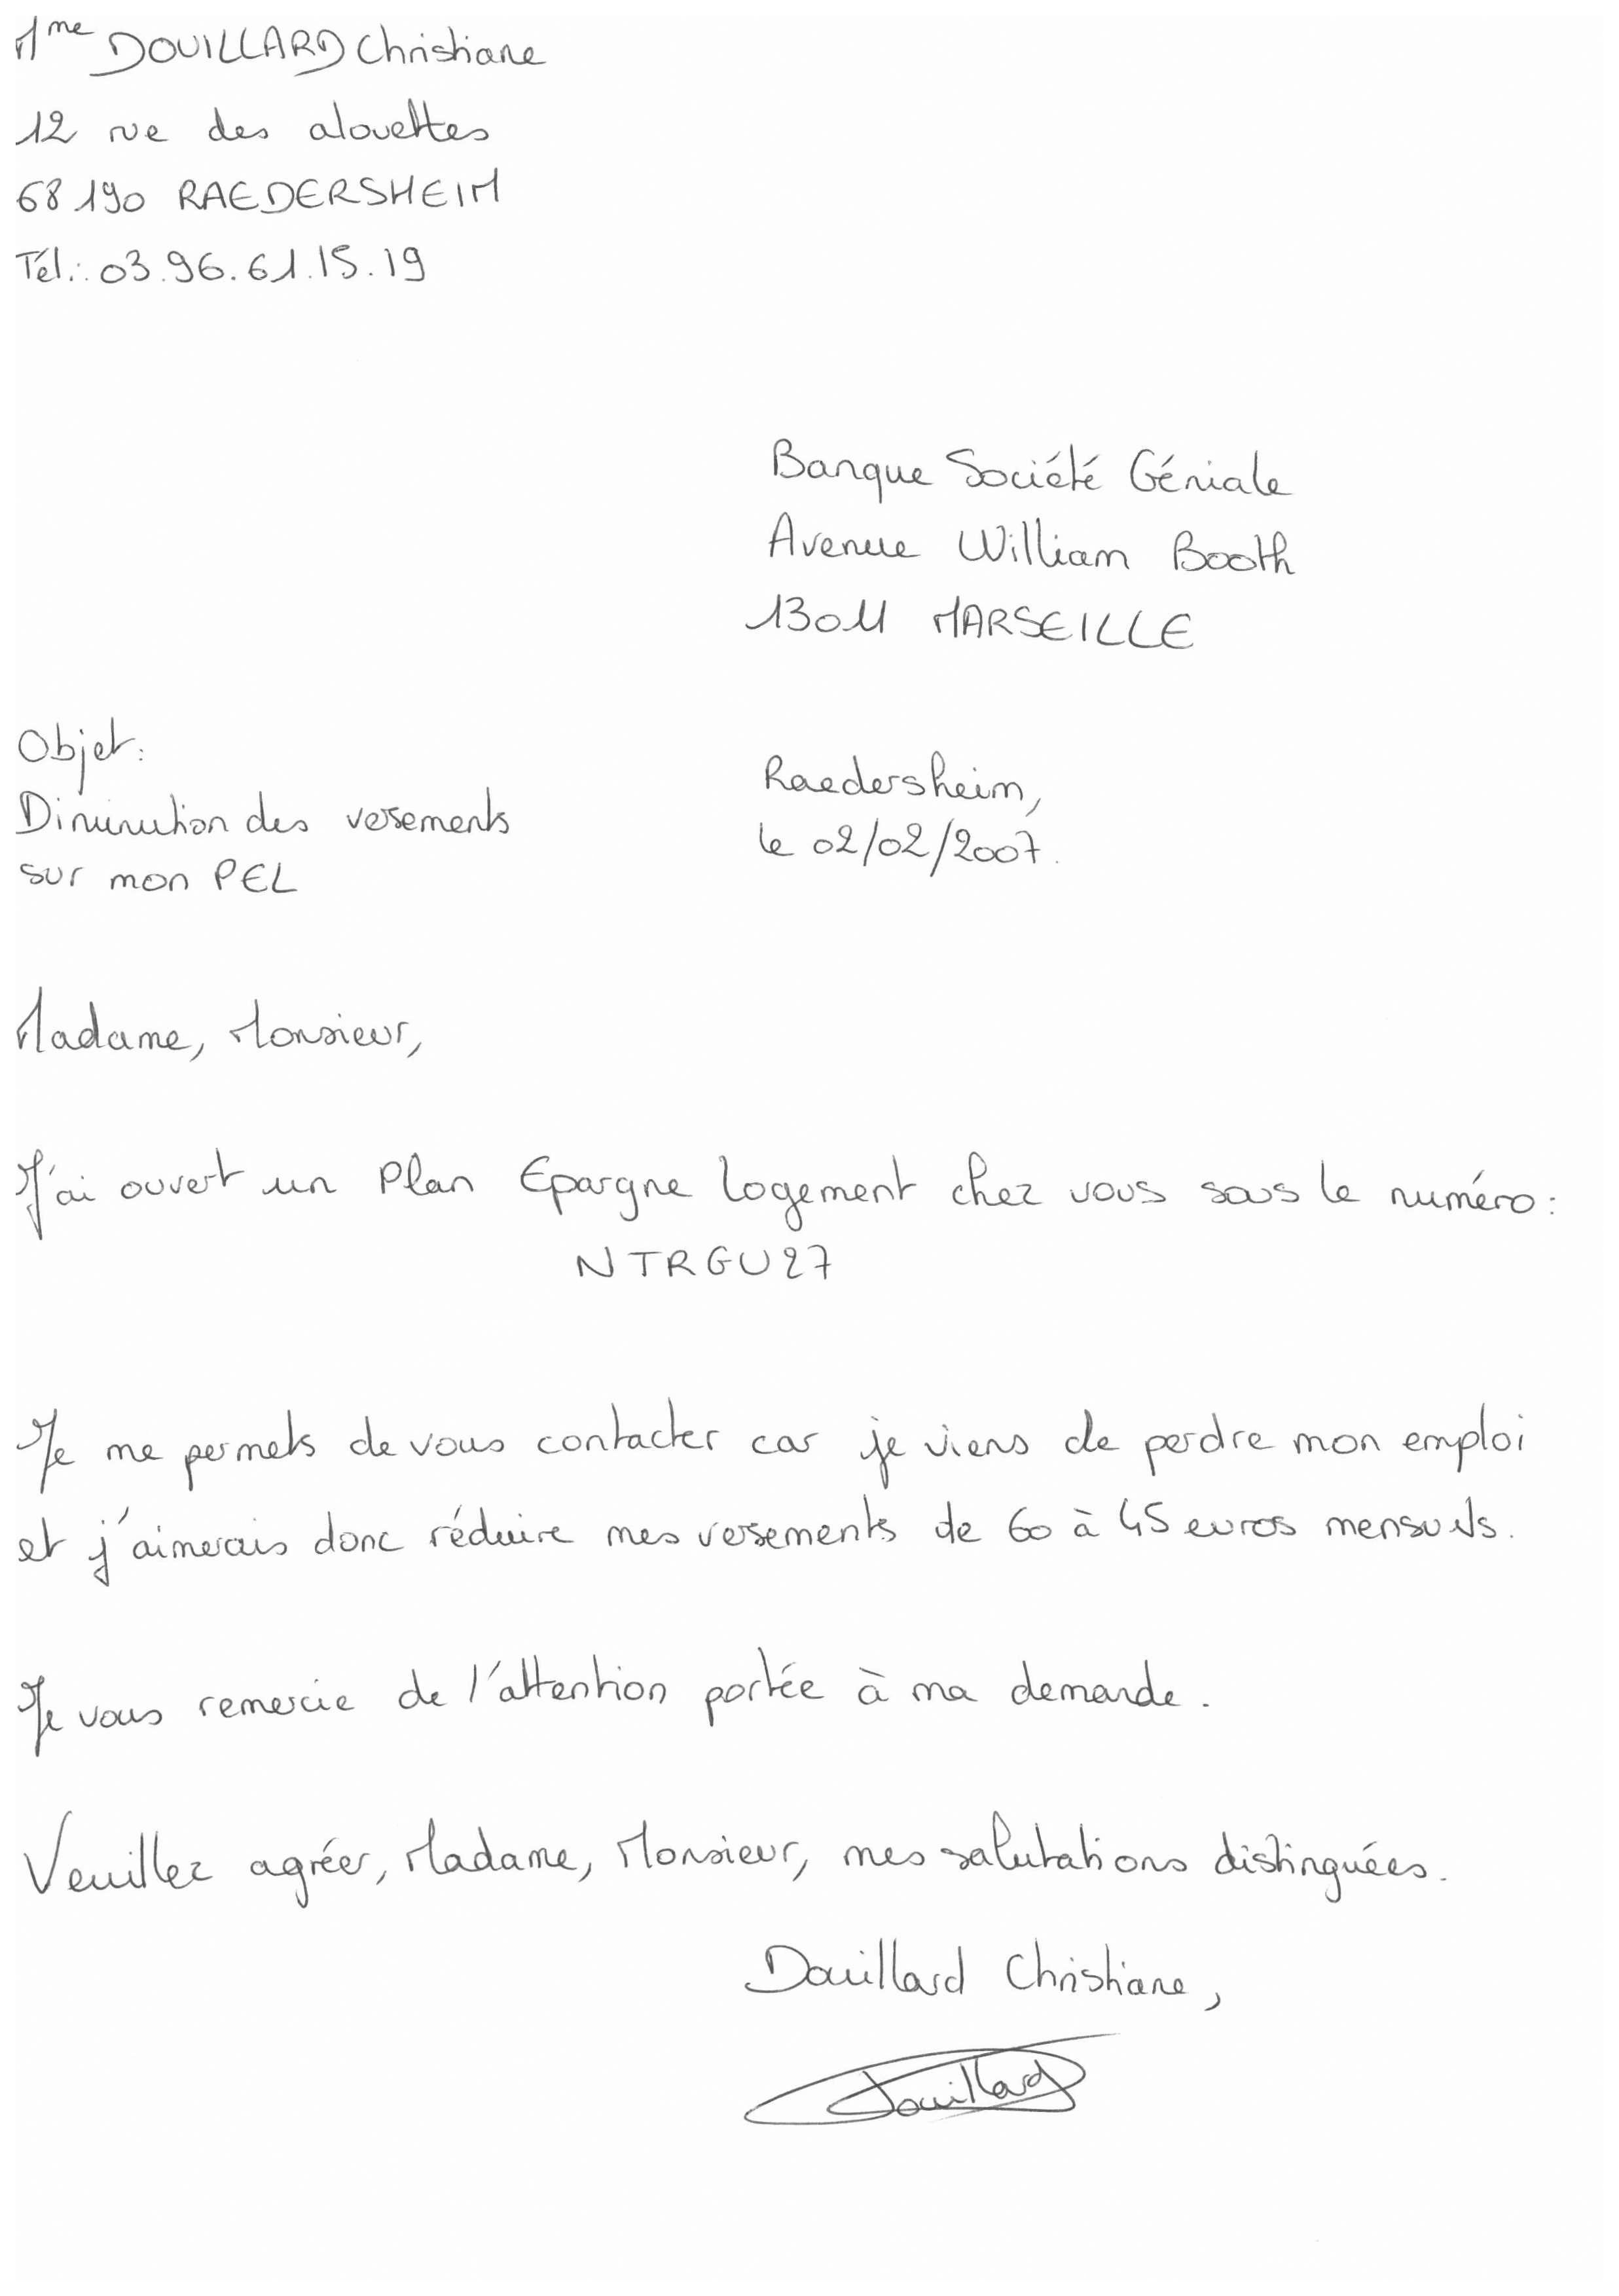 Mme DOUILLARD Christiane
12 rue des alouettes
68190 RAEDERSHEIM
Tél.: 03.96.61.15.19
Banque Société Géniale
Avenue William Booth
13011 MARSEILLE
Objet:
Diminution des versements
sur mon PEL
Raedersheim,
le 02/02/2007.
Madame, Monsieur,
J'ai ouvert un Plan Epargne Logement chez vous sous le numéro:
NTRGU27
Je me permets de vous contacter car je viens de perdre mon emploi
et j'aimerais donc réduire mes versements de 60 à 45 euros mensuels.
Je vous remercie de l'attention portée à ma demande.
Veuillez agréer, Madame, Monsieur, mes salutations distinguées.
Douillard Christiane,
Douillard